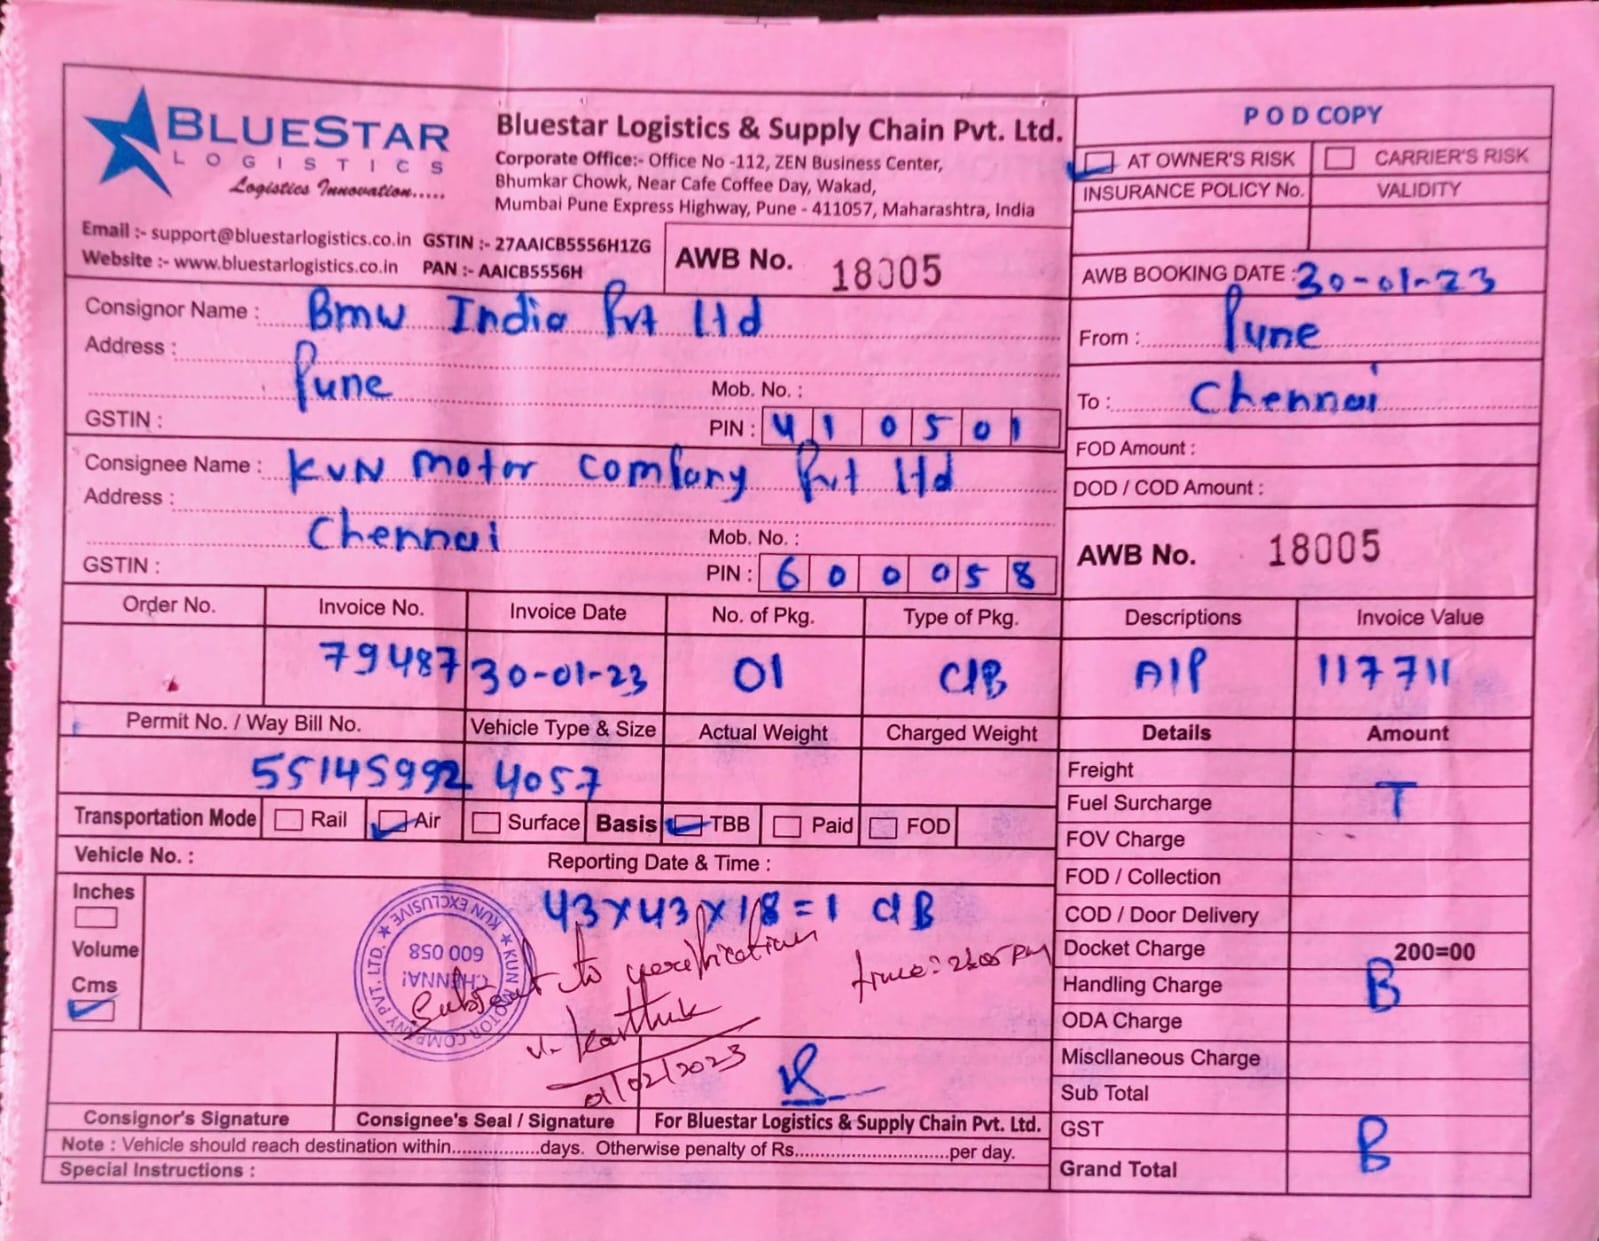 BLUESTAR
LOGISTICS
Logistics Innovation.....
Bluestar Logistics & Supply Chain Pvt. Ltd.
Corporate Office:- Office No -112, ZEN Business Center,
Bhumkar Chowk, Near Cafe Coffee Day, Wakad,
Mumbai Pune Express Highway, Pune - 411057, Maharashtra, India
Email :- support@bluestarlogistics.co.in GSTIN :- 27AAICB5556H1ZG
Website :- www.bluestarlogistics.co.in PAN :- AAICB5556H
AWB No. 18005
POD COPY
AT OWNER'S RISK CARRIER'S RISK
INSURANCE POLICY No. VALIDITY
AWB BOOKING DATE : 30-01-23
From : Pune
To : Chennai
FOD Amount :
DOD / COD Amount :
AWB No. 18005
Consignor Name : Bmw India Pvt Ltd
Address :
Pune Mob. No. :
GSTIN : PIN : 410501
Consignee Name : KUN motor company Pvt Ltd
Address :
Chennai Mob. No. :
GSTIN : PIN : 600058
Order No. Invoice No. Invoice Date No. of Pkg. Type of Pkg. Descriptions Invoice Value
79487 30-01-23 01 C/B A/P 117711
Permit No. / Way Bill No. Vehicle Type & Size Actual Weight Charged Weight Details Amount
55145992 4057
Transportation Mode Rail Air Surface Basis TBB Paid FOD
Vehicle No. : Reporting Date & Time :
Inches
Volume
Cms
43x43x18=1 C/B
KUN EXCLUSIVE ★ KUN MOTOR COMPANY PVT. LTD. ★
CHENNAI
600 058
Subject to verification
v. Karthik
01/02/2023
Freight
Fuel Surcharge T
FOV Charge
FOD / Collection
COD / Door Delivery
Docket Charge 200=00
Handling Charge B
ODA Charge
Miscllaneous Charge
Sub Total
GST B
Grand Total
Consignor's Signature Consignee's Seal / Signature For Bluestar Logistics & Supply Chain Pvt. Ltd.
Note : Vehicle should reach destination within.................days. Otherwise penalty of Rs.............................per day.
Special Instructions :